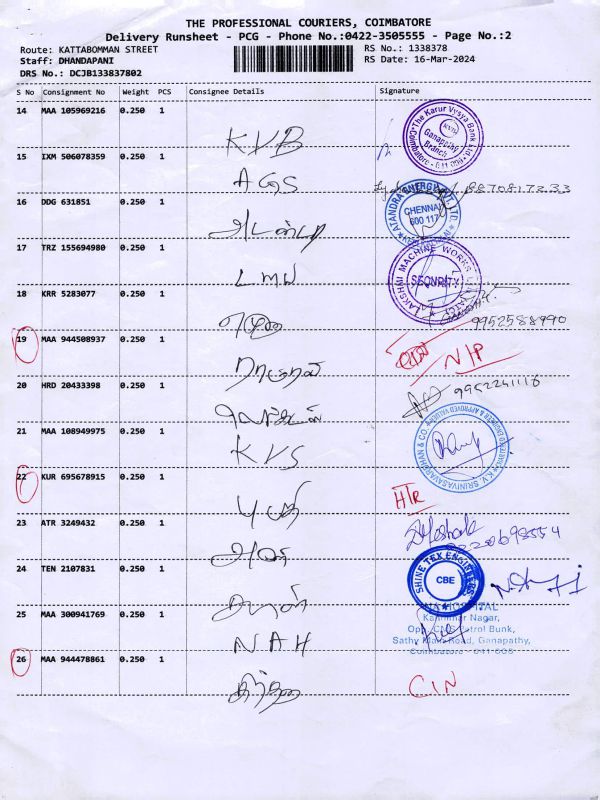 THE PROFESSIONAL COURIERS, COIMBATORE
Delivery Runsheet - PCG - Phone No.:0422-3505555 - Page No.:2
Route: KATTABOMMAN STREET
RS No.: 1338378
Staff: DHANDAPANI
RS Date: 16-Mar-2024
DRS No.: DCJB133837802
S No Consignment No Weight PCS Consignee Details Signature
14 MAA 105969216 0.250 1
KVB
The Karur Vysya Bank Ltd Ganapathy Branch Coimbatore - 641 006
15 IXM 506078359 0.250 1
AGS
8870817233
16 DDG 631851 0.250 1
CHENNAI 600 117
17 TRZ 155694980 0.250 1
LMW
LAKSHMI MACHINE WORKS SECURITY
18 KRR 5283077 0.250 1
9952588990
19 MAA 944508937 0.250 1
N/P
20 HRD 20433398 0.250 1
21 MAA 108949975 0.250 1
KVS
K.V. SRINIVASAVARDHAN & CO
22 KUR 695678915 0.250 1
HTR
23 ATR 3249432 0.250 1
24 TEN 2107831 0.250 1
SHINE TEX ENGINEERS CBE
25 MAA 300941769 0.250 1
NAH
HOSPITAL
Nagar,
Petrol Bunk,
Sathy Main Road, Ganapathy,
Coimbatore - 641 006
26 MAA 944478861 0.250 1
CIN